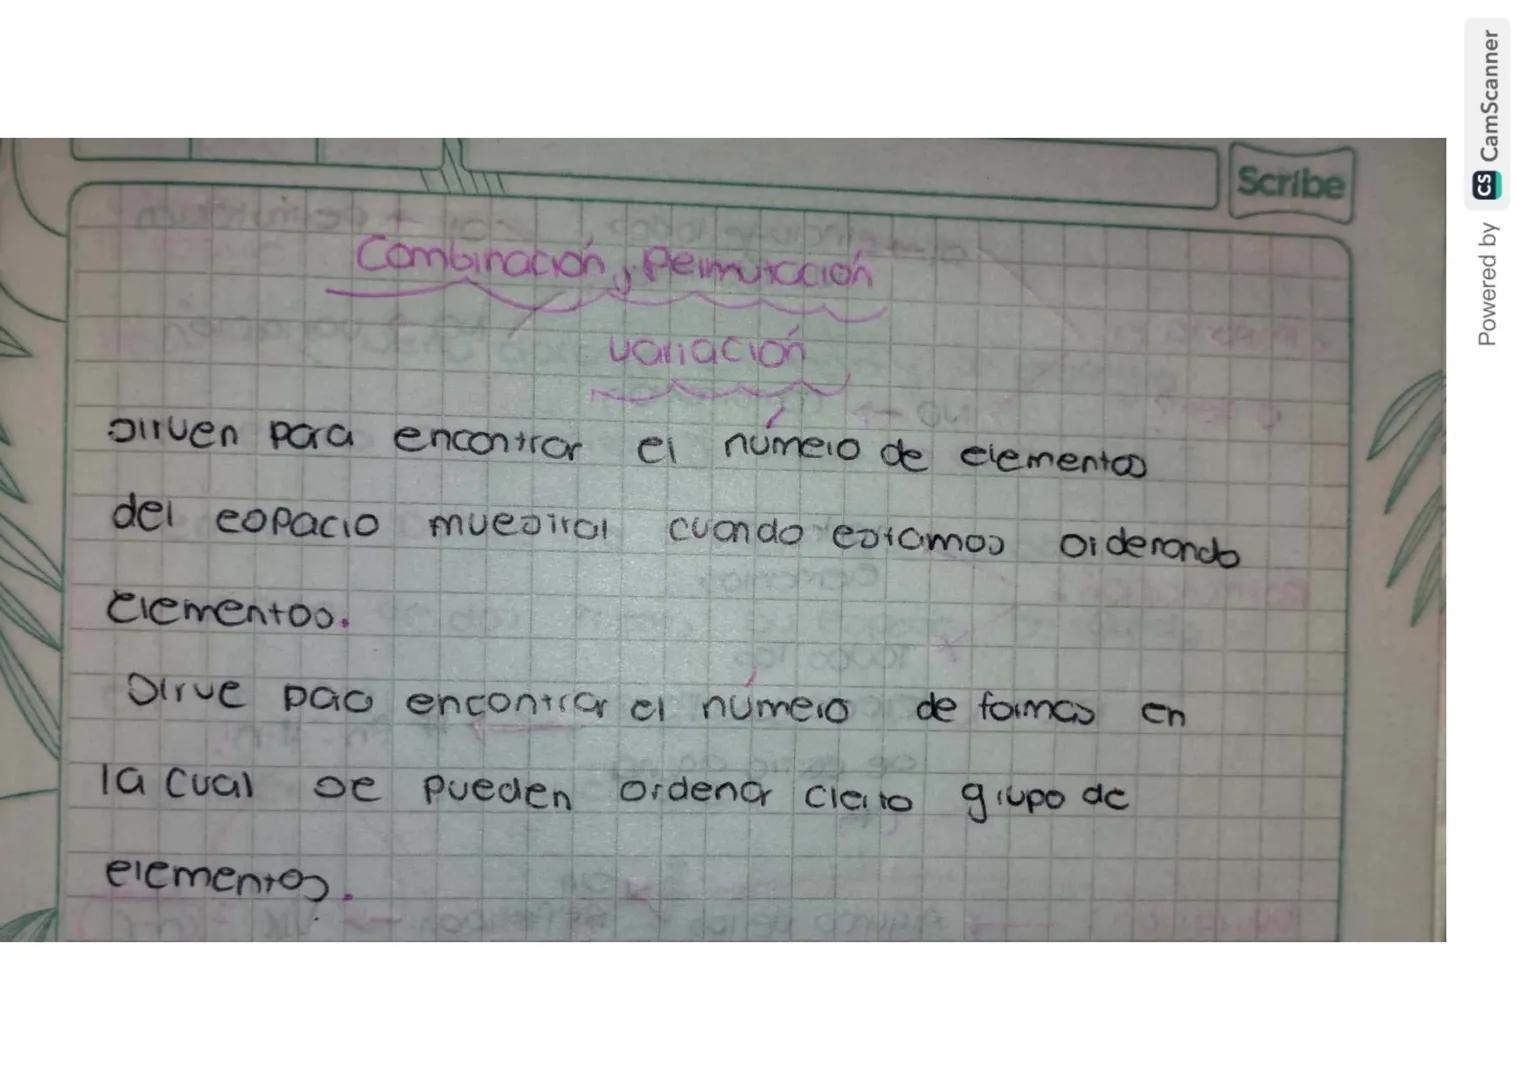 Scribe
Combinación, Permutación
variación
Sirven para encontrar el número de elementos
del espacio muestral cuando estamos ordenando
elementos.
Sirve para encontrar el número de formas en
la cual se pueden ordenar cierto grupo de
elementos.
Powered by CS CamScanner